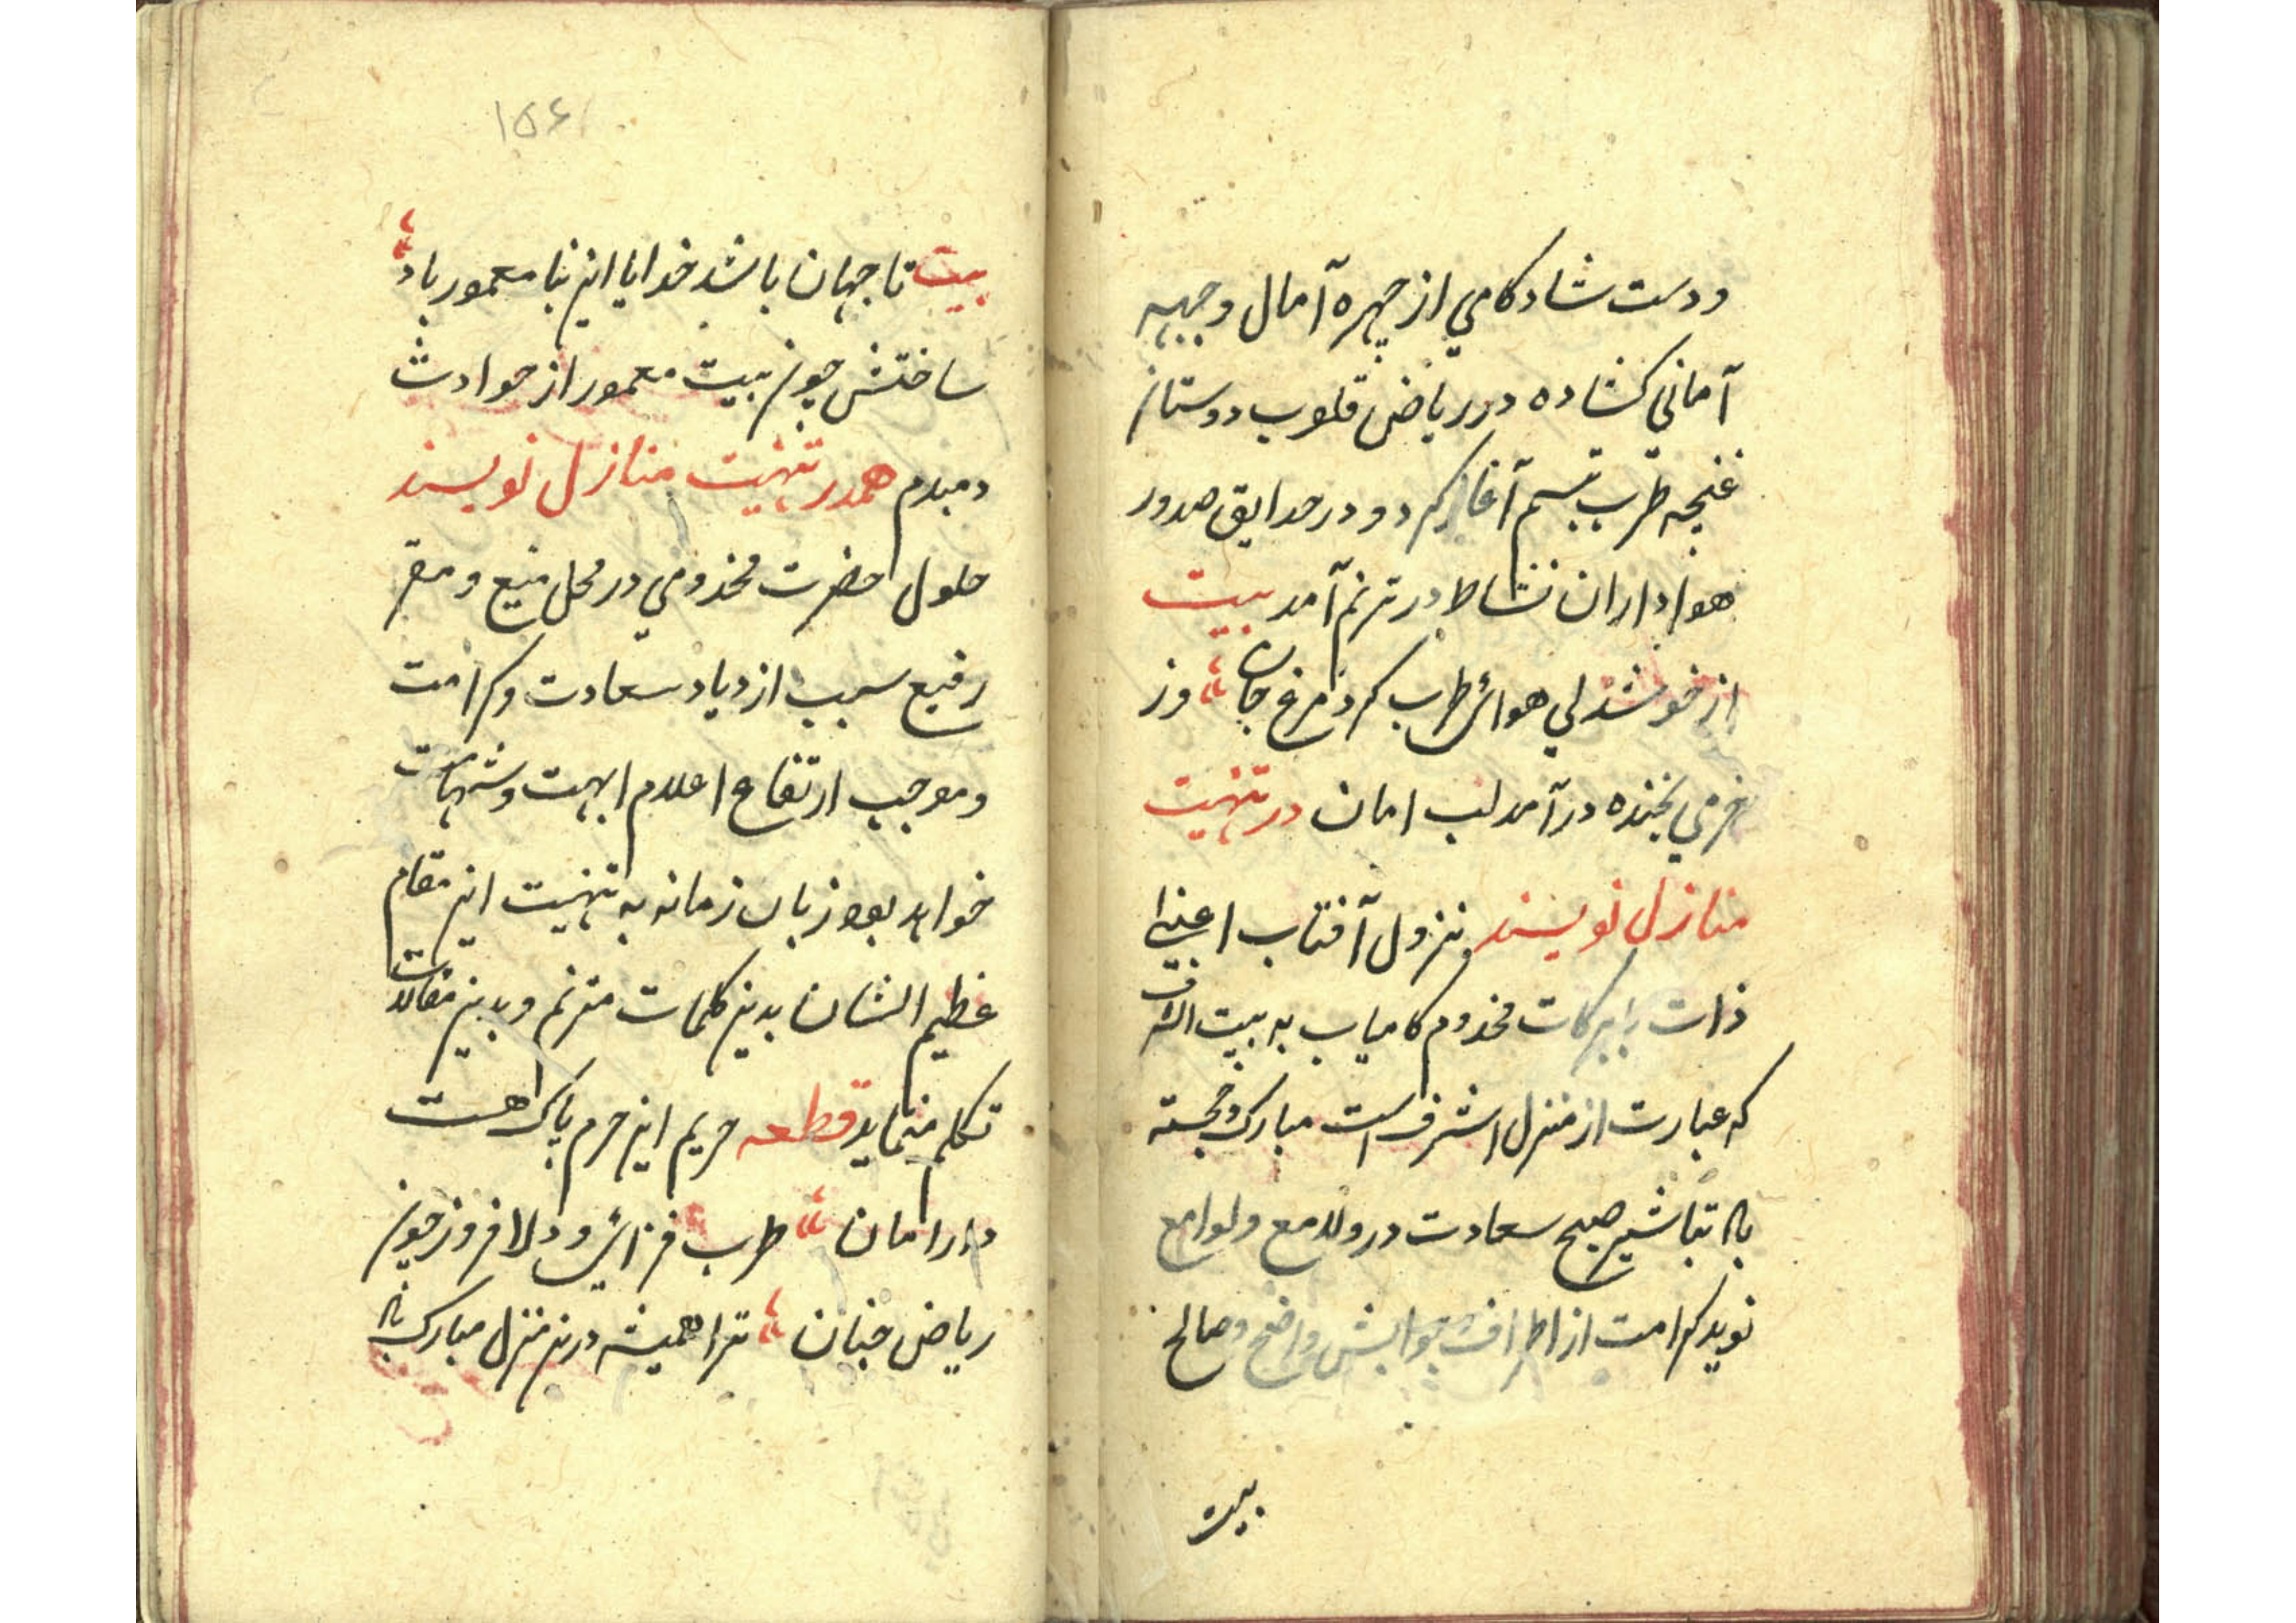 و دست شادکامي از چهره آمال و جبهه
آماني کشاده در رياض قلوب دوستان
غنچه طرب تبسم آغاز کرد و در حدايق صدور
هواداران نشاط در ترنم آمد بيت
از خوشدلي هوائ طرب کرد مرغ جان وز
خرمي بخنده درآمد لب امان در تهنيت
منازل نويسند نزول آفتاب اعني
ذات بابرکات مخدوم کامياب به بيت الشرف
که عبارت از منزل اشرف است مبارک و خجسته
باد تباشير صبح سعادت در و لامع و لوامع
نويد کرامت از اطراف و جوانبش واضح و صالح
بيت
۱۵۶
بيت تا جهان باشد خدايا اين بنا معمور باد
ساختش چون بيت معمور از حوادث
دمبدم همدر تهنيت منازل نويسند
حلول حضرت مخدومي در محل منيع و مقر
رفيع سبب ازدياد سعادت و کرامت
و موجب ارتفاع اعلام ابهت و شهامت
خواهد بود زبان زمانه به تهنيت اين مقام
عظيم الشان بدين کلمات مترنم و بدين مقالات
تکلم مينمايد قطعه حريم اين حرم پاک هست
دار امان طرب فزائ و دلافروز چون
رياض جنان ترا هميشه درين منزل مبارک باد